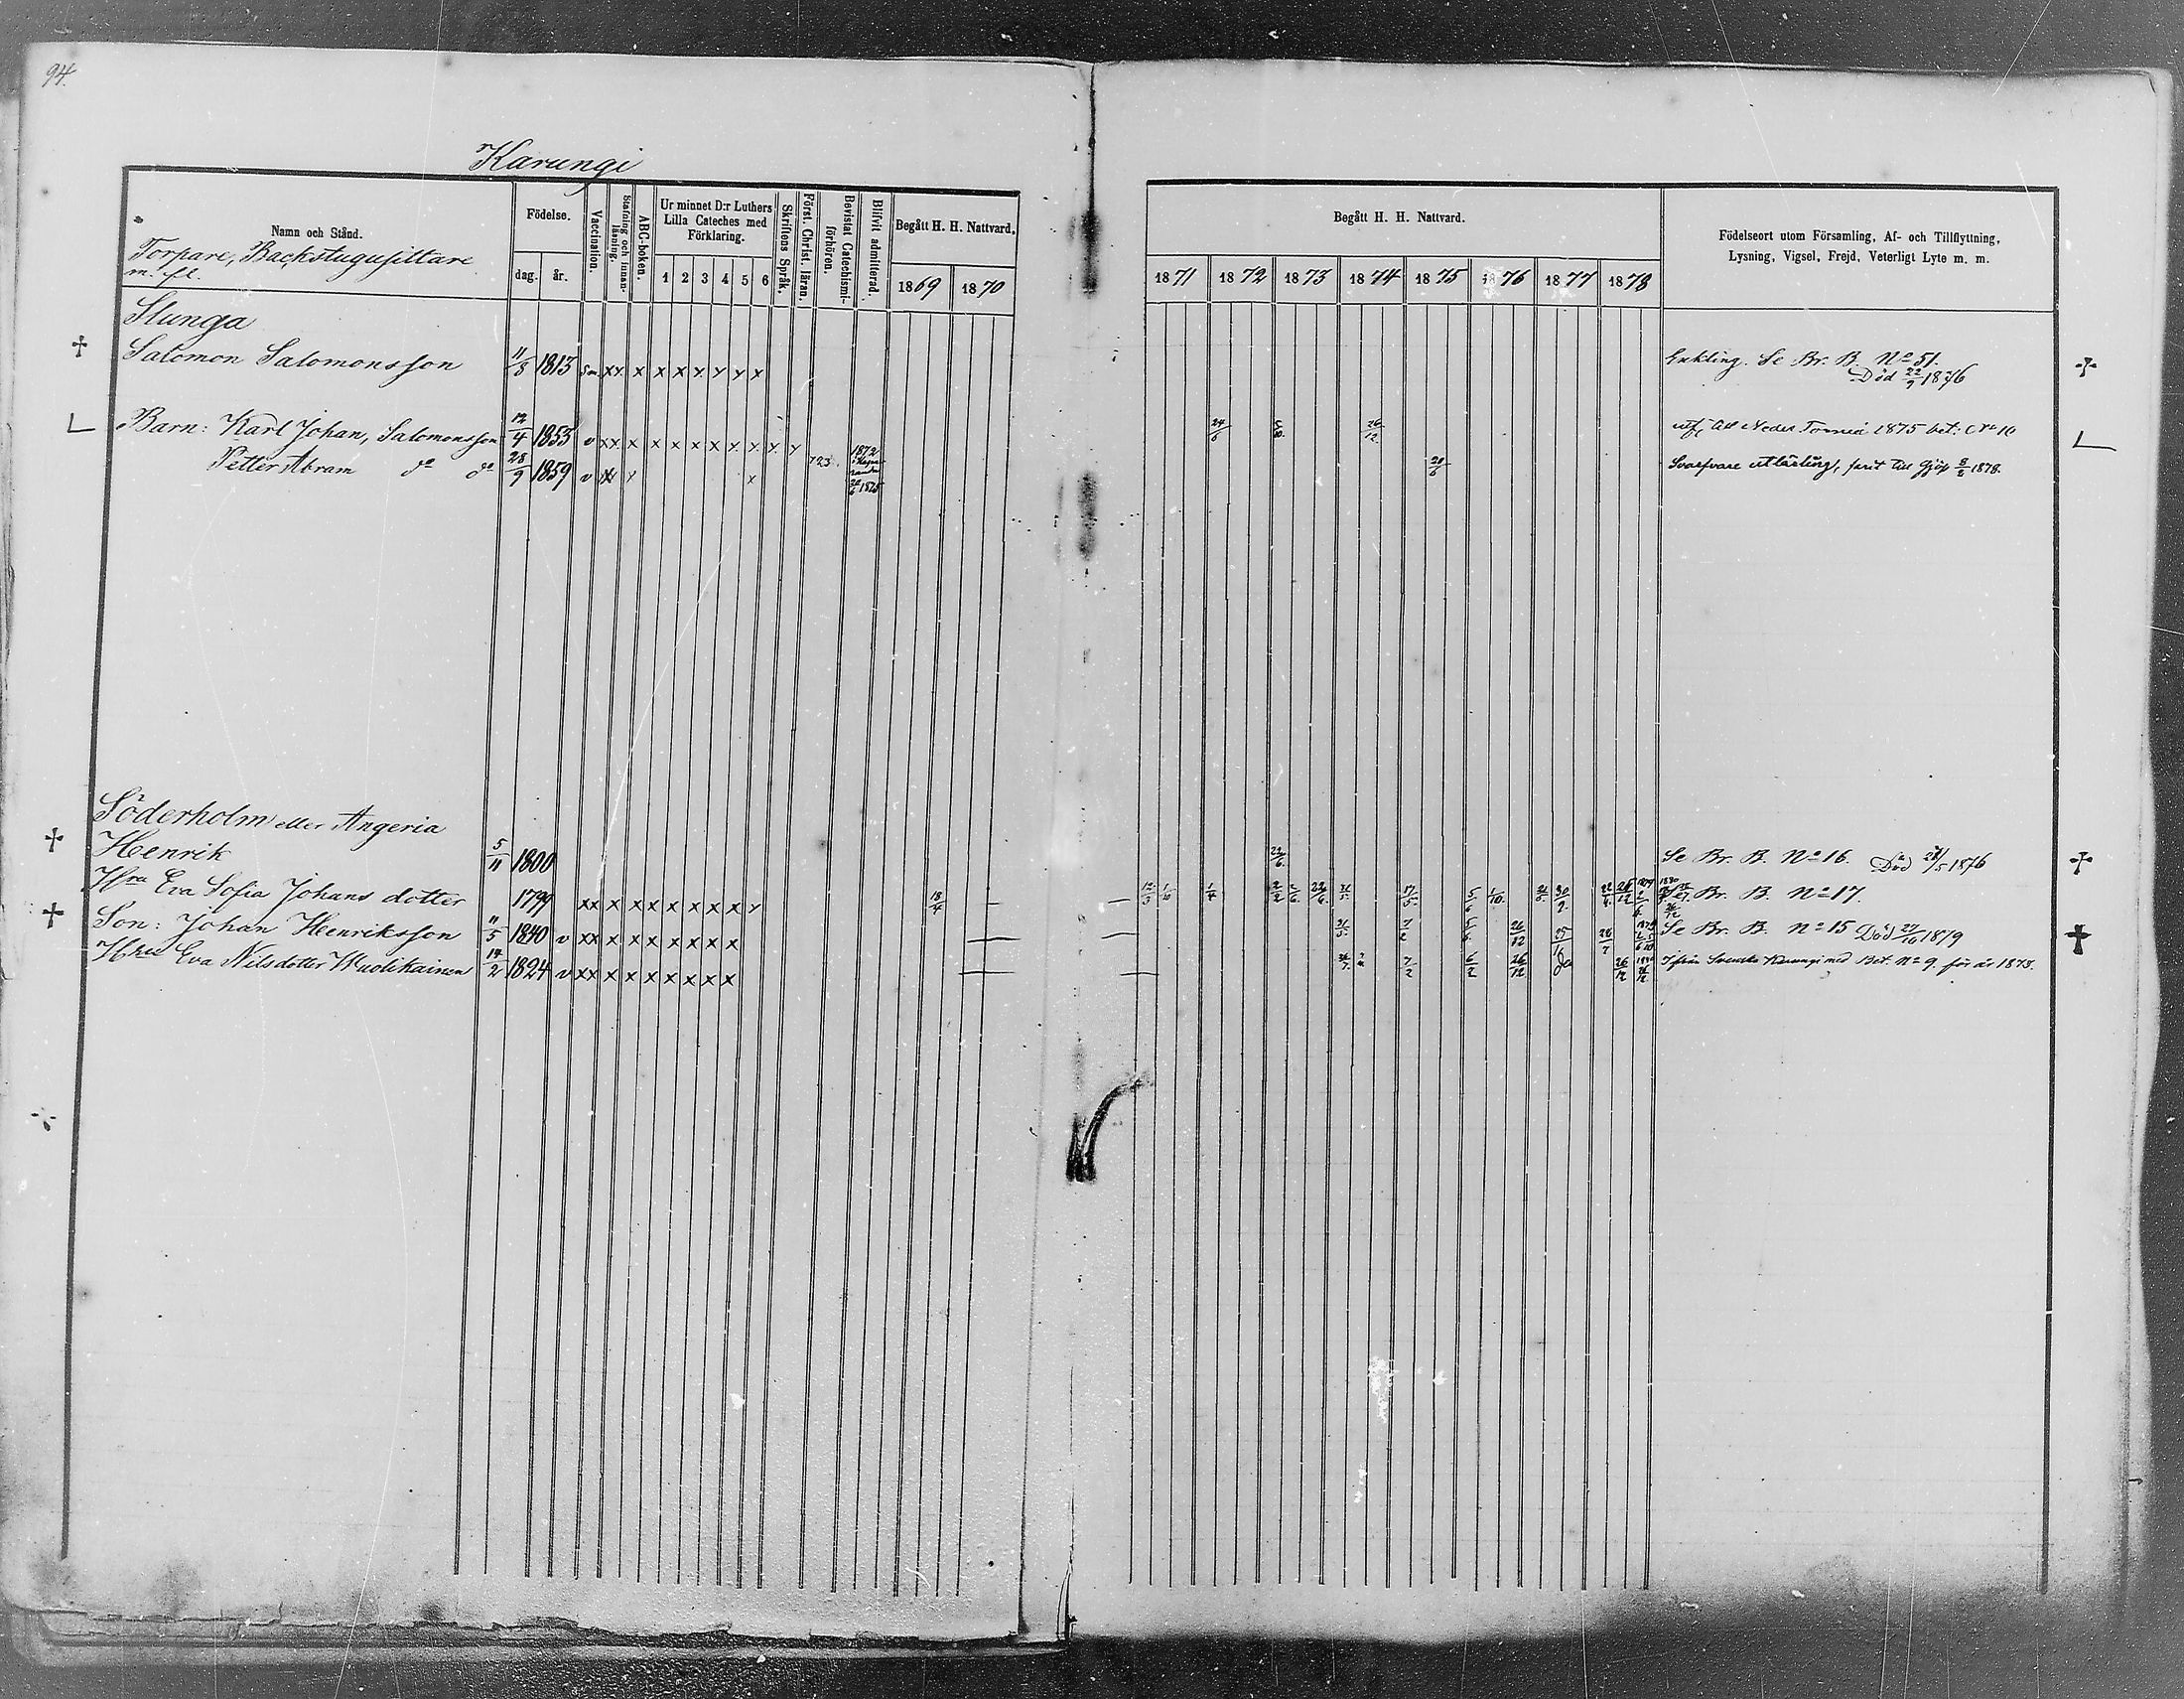 94.
Karungi
Namn och Stånd.
Torpare, Backstugusittare
m. fl.
Födelse.
dag. år.
Vaccination.
Stafning och innan-läsning.
ABC-boken.
Ur minnet D:r Luthers
Lilla Cateches med
Förklaring.
1 2 3 4 5 6
Skriftens Språk.
Först. Christ. läran.
Bevistat Catechismi-förhören.
Blifvit admitterad.
Begått H. H. Nattvard.
1869 1870
Begått H. H. Nattvard.
1871 1872 1873 1874 1875 1876 1877 1878
Födelseort utom Församling, Af- och Tillflyttning,
Lysning, Vigsel, Frejd, Veterligt Lyte m. m.
Slunga
Salomon Salomonsson 11/8 1813 xx x x x x x x x Enkling. Se Br. B. No 51.
Död 22/9 1876
Barn: Karl Johan, Salomonsson 12/4 1853 v xx x x x x x x x x x 1872 24/6 26/12 utfl. till Neder Torneå 1875 bet.
Petter Abram do do 28/9 1859 v xx x x 1875 20/6 Svarfvare till 1878.
Söderholm eller Angeria
Henrik 5/11 1800 22/6 Se Br. B. No 16. Död 1876
Hru Eva Sofia Johans dotter 1799 xx x x x x x x x x 18/4 Br. B. No 17.
Son: Johan Henriksson 11/5 1840 v xx x x x x x x x 26/12 Se Br. B. No 15 Död 27/10 1879
Hru Eva Nilsdotter Wuolikainen 14/2 1824 v xx x x x x x x x 7/2 6/2 26/12 26/12 Ifrån Svenska Karungi med Bet. No 9. för år 1873.